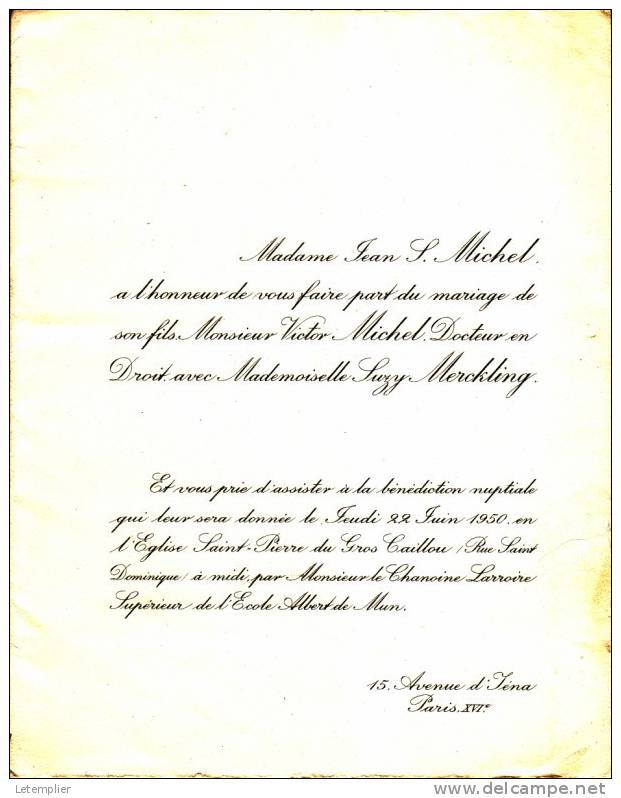 Madame Jean S. Michel.
a l'honneur de vous faire part du mariage de
son fils Monsieur Victor Michel, Docteur en
Droit avec Mademoiselle Suzy Merckling.
Et vous prie d'assister à la bénédiction nuptiale
qui leur sera donnée le Jeudi 22 Juin 1950, en
l'Eglise Saint-Pierre du Gros Caillou (Rue Saint
Dominique) à midi, par Monsieur le Chanoine Larroire
Supérieur de l'Ecole Albert de Mun.
15, Avenue d'Iéna
Paris, XVIe
Letemplier
www.delcampe.net